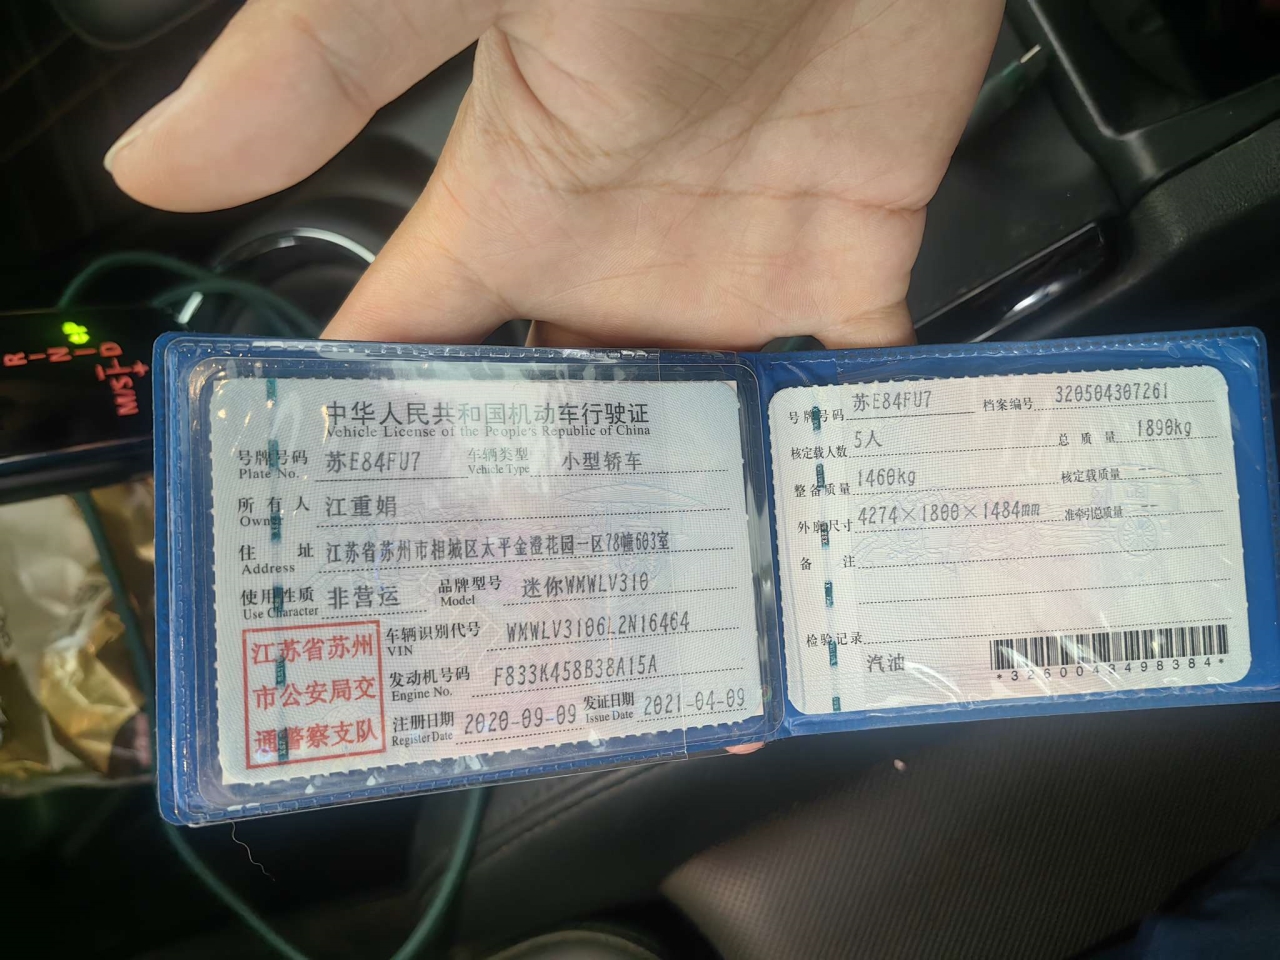 中华人民共和国机动车行驶证
Vehicle License of the People's Republic of China
号牌号码 苏E84FU7 车辆类型 小型轿车
Plate No. Vehicle Type
所有人 江重娟
Owner
住址 江苏省苏州市相城区太平金澄花园一区78幢603室
Address
使用性质 非营运 品牌型号 迷你WMWLV310
Use Character Model
江苏省苏州
市公安局交
通警察支队
车辆识别代号 WMWLV3106L2N16464
VIN
发动机号码 F833K458B38A15A
Engine No.
注册日期 2020-09-09 发证日期 2021-04-09
Register Date Issue Date
号牌号码 苏E84FU7 档案编号 320504307261
核定载人数 5人 总质量 1890kg
整备质量 1460kg 核定载质量 --
外廓尺寸 4274×1800×1484mm 准牵引总质量 --
备注
检验记录
汽油
*3260043498384*
R
N
D
M/S
+
eP